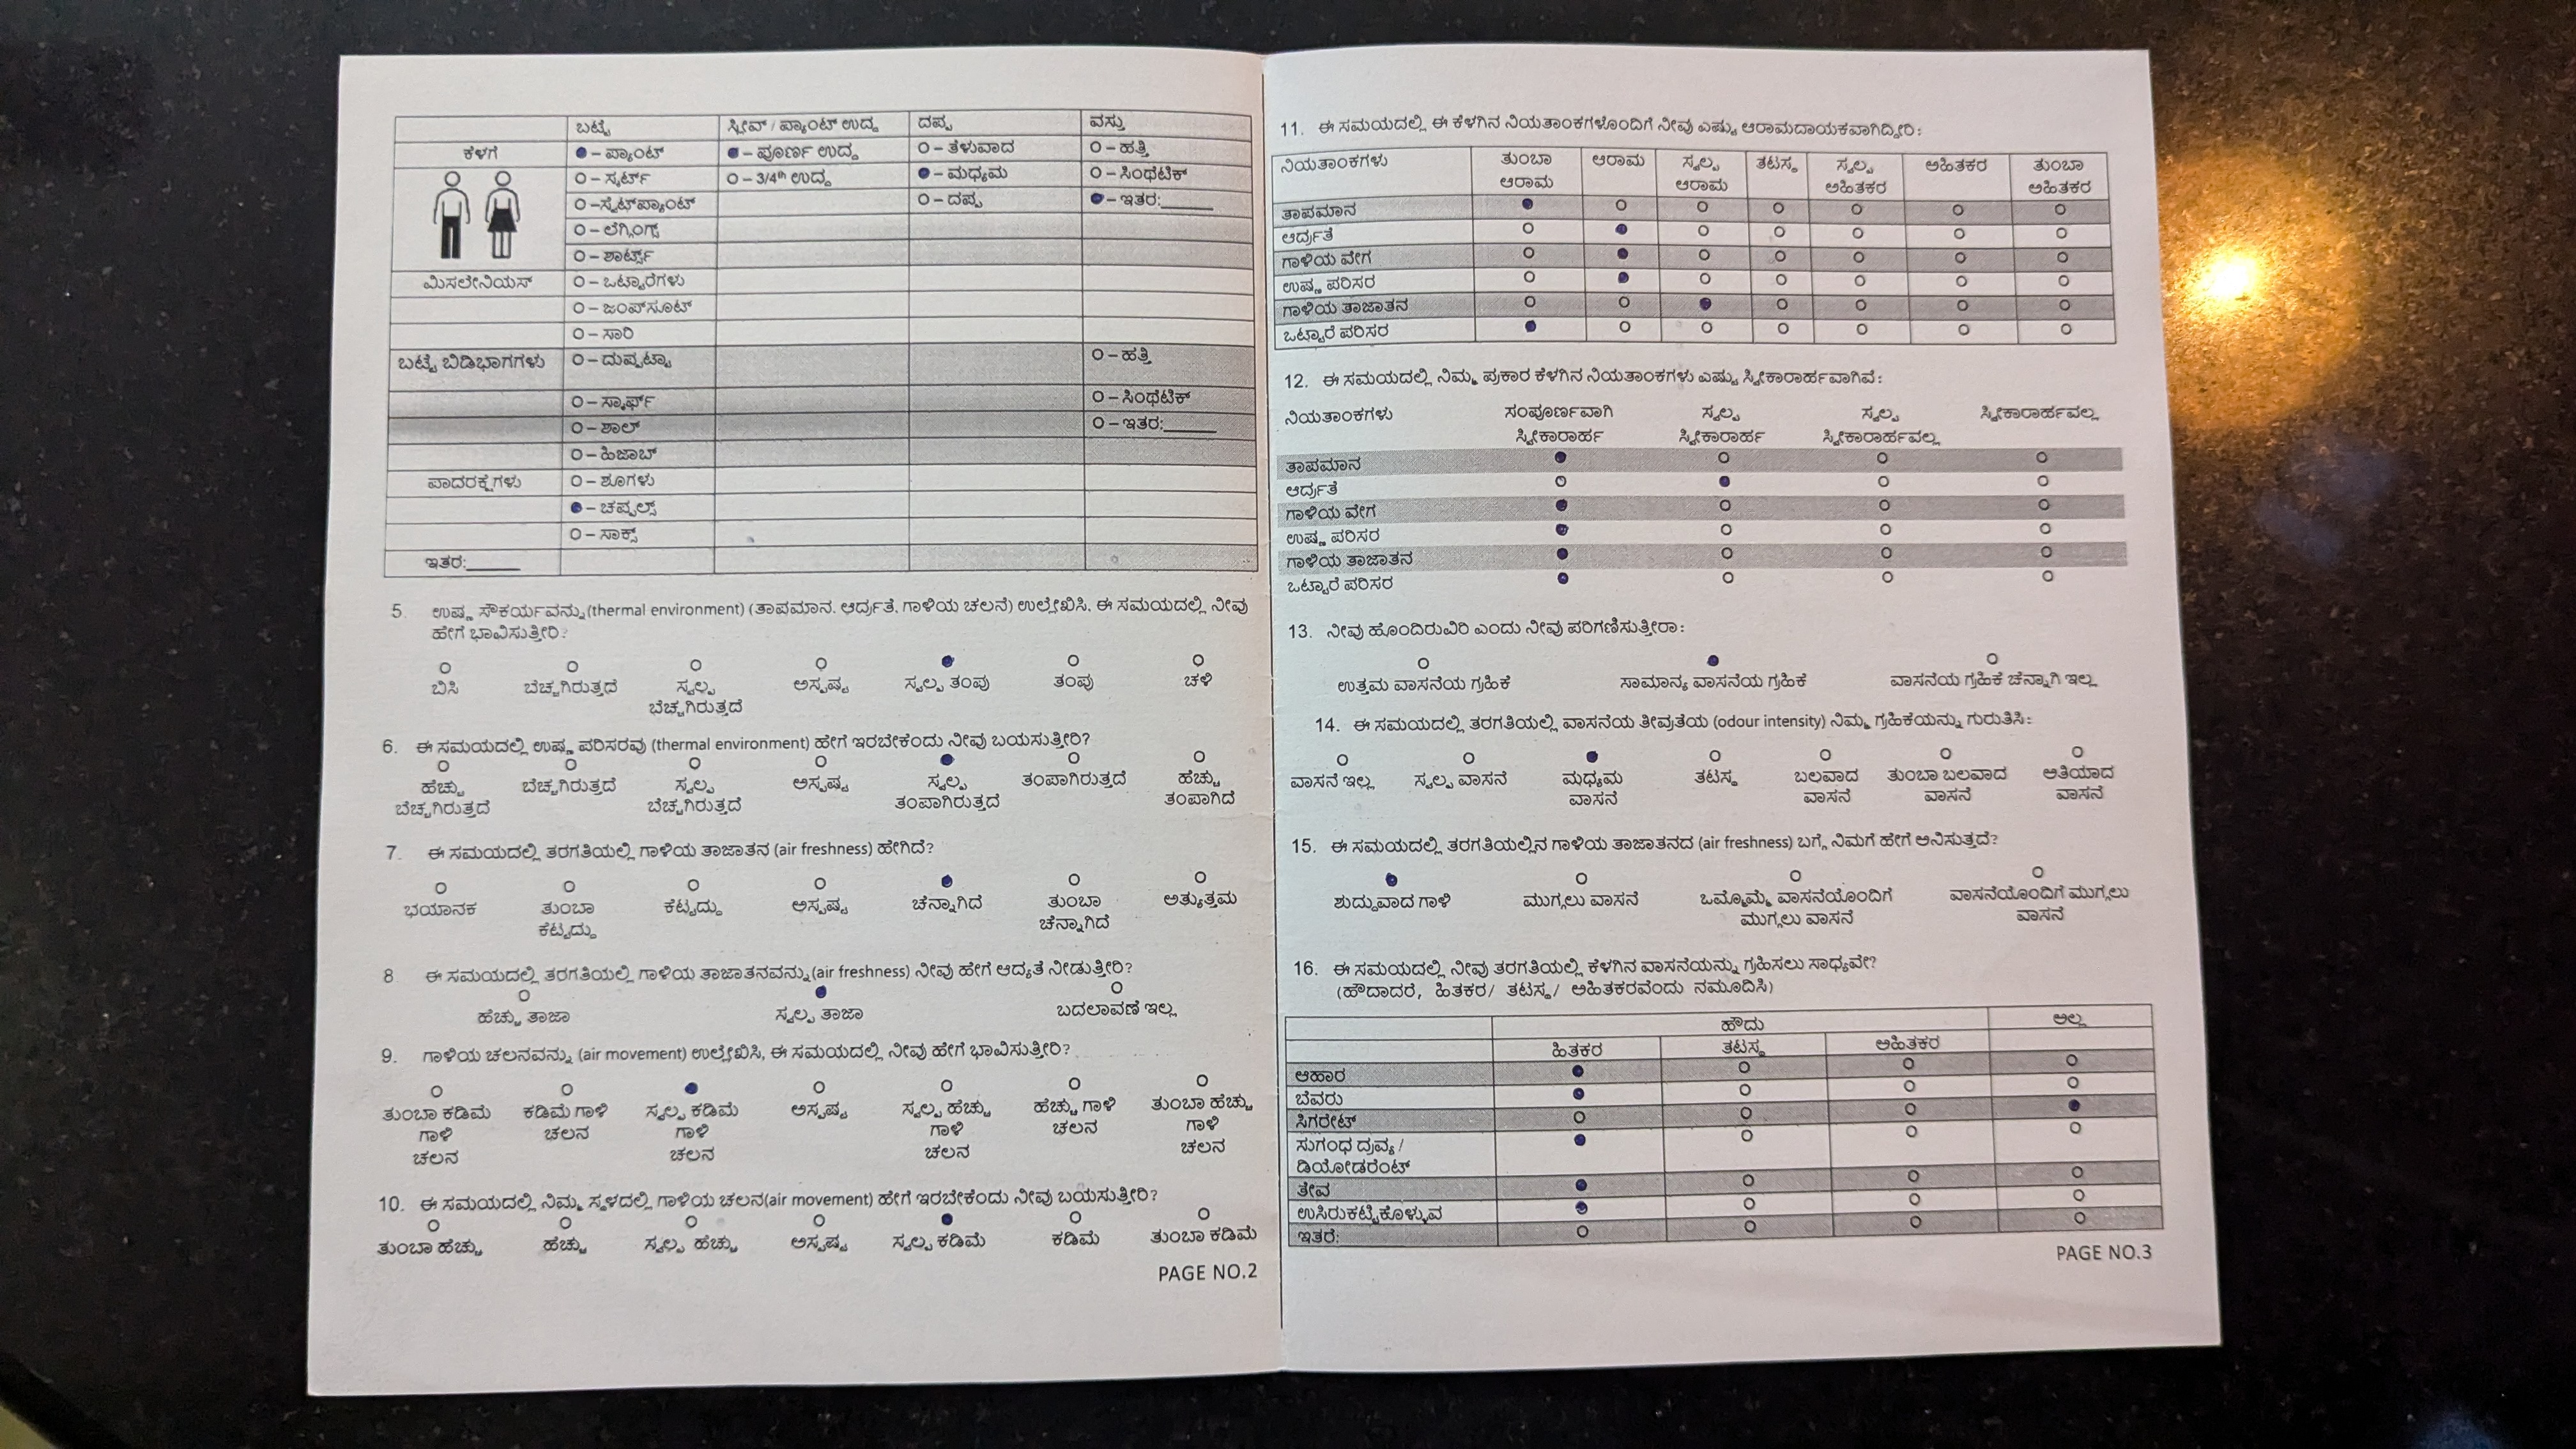 ಬಟ್ಟೆ ಸ್ಲೀವ್ / ಪ್ಯಾಂಟ್ ಉದ್ದ ದಪ್ಪ ವಸ್ತು
ಕೆಳಗೆ ●–ಪ್ಯಾಂಟ್ ●–ಪೂರ್ಣ ಉದ್ದ O–ತೆಳುವಾದ O–ಹತ್ತಿ
O–ಸ್ಕರ್ಟ್ O–3/4th ಉದ್ದ ●–ಮಧ್ಯಮ O–ಸಿಂಥೆಟಿಕ್
O–ಸ್ವೆಟ್‌ಪ್ಯಾಂಟ್ O–ದಪ್ಪ ●–ಇತರ:______
O–ಲೆಗ್ಗಿಂಗ್ಸ್
O–ಶಾರ್ಟ್ಸ್
ಮಿಸಲೇನಿಯಸ್ O–ಒಟ್ಟಾರೆಗಳು
O–ಜಂಪ್‌ಸೂಟ್
O–ಸಾರಿ
ಬಟ್ಟೆ ಬಿಡಿಭಾಗಗಳು O–ದುಪ್ಪಟ್ಟಾ O–ಹತ್ತಿ
O–ಸ್ಕಾರ್ಫ್ O–ಸಿಂಥೆಟಿಕ್
O–ಶಾಲ್ O–ಇತರ:______
O–ಹಿಜಾಬ್
ಪಾದರಕ್ಷೆಗಳು O–ಶೂಗಳು
●–ಚಪ್ಪಲ್ಸ್
O–ಸಾಕ್ಸ್
ಇತರ:______
5. ಉಷ್ಣ ಸೌಕರ್ಯವನ್ನು (thermal environment) (ತಾಪಮಾನ, ಆರ್ದ್ರತೆ, ಗಾಳಿಯ ಚಲನೆ) ಉಲ್ಲೇಖಿಸಿ, ಈ ಸಮಯದಲ್ಲಿ ನೀವು
ಹೇಗೆ ಭಾವಿಸುತ್ತೀರಿ?
ಬಿಸಿ ಬೆಚ್ಚಗಿರುತ್ತದೆ ಸ್ವಲ್ಪ ಅಸ್ಪಷ್ಟ ಸ್ವಲ್ಪ ತಂಪು ತಂಪು ಚಳಿ
ಬೆಚ್ಚಗಿರುತ್ತದೆ
6. ಈ ಸಮಯದಲ್ಲಿ ಉಷ್ಣ ಪರಿಸರವು (thermal environment) ಹೇಗೆ ಇರಬೇಕೆಂದು ನೀವು ಬಯಸುತ್ತೀರಿ?
ಹೆಚ್ಚು ಬೆಚ್ಚಗಿರುತ್ತದೆ ಸ್ವಲ್ಪ ಅಸ್ಪಷ್ಟ ಸ್ವಲ್ಪ ತಂಪಾಗಿರುತ್ತದೆ ಹೆಚ್ಚು
ಬೆಚ್ಚಗಿರುತ್ತದೆ ಬೆಚ್ಚಗಿರುತ್ತದೆ ತಂಪಾಗಿರುತ್ತದೆ ತಂಪಾಗಿದೆ
7. ಈ ಸಮಯದಲ್ಲಿ ತರಗತಿಯಲ್ಲಿ ಗಾಳಿಯ ತಾಜಾತನ (air freshness) ಹೇಗಿದೆ?
ಭಯಾನಕ ತುಂಬಾ ಕೆಟ್ಟದ್ದು ಅಸ್ಪಷ್ಟ ಚೆನ್ನಾಗಿದೆ ತುಂಬಾ ಅತ್ಯುತ್ತಮ
ಕೆಟ್ಟದ್ದು ಚೆನ್ನಾಗಿದೆ
8 ಈ ಸಮಯದಲ್ಲಿ ತರಗತಿಯಲ್ಲಿ ಗಾಳಿಯ ತಾಜಾತನವನ್ನು (air freshness) ನೀವು ಹೇಗೆ ಆದ್ಯತೆ ನೀಡುತ್ತೀರಿ?
ಹೆಚ್ಚು ತಾಜಾ ಸ್ವಲ್ಪ ತಾಜಾ ಬದಲಾವಣೆ ಇಲ್ಲ
9. ಗಾಳಿಯ ಚಲನವನ್ನು (air movement) ಉಲ್ಲೇಖಿಸಿ, ಈ ಸಮಯದಲ್ಲಿ ನೀವು ಹೇಗೆ ಭಾವಿಸುತ್ತೀರಿ?
ತುಂಬಾ ಕಡಿಮೆ ಕಡಿಮೆ ಗಾಳಿ ಸ್ವಲ್ಪ ಕಡಿಮೆ ಅಸ್ಪಷ್ಟ ಸ್ವಲ್ಪ ಹೆಚ್ಚು ಹೆಚ್ಚು ಗಾಳಿ ತುಂಬಾ ಹೆಚ್ಚು
ಗಾಳಿ ಚಲನ ಗಾಳಿ ಗಾಳಿ ಚಲನ ಗಾಳಿ
ಚಲನ ಚಲನ ಚಲನ ಚಲನ
10. ಈ ಸಮಯದಲ್ಲಿ ನಿಮ್ಮ ಸ್ಥಳದಲ್ಲಿ ಗಾಳಿಯ ಚಲನ(air movement) ಹೇಗೆ ಇರಬೇಕೆಂದು ನೀವು ಬಯಸುತ್ತೀರಿ?
ತುಂಬಾ ಹೆಚ್ಚು ಹೆಚ್ಚು ಸ್ವಲ್ಪ ಹೆಚ್ಚು ಅಸ್ಪಷ್ಟ ಸ್ವಲ್ಪ ಕಡಿಮೆ ಕಡಿಮೆ ತುಂಬಾ ಕಡಿಮೆ
PAGE NO.2
11. ಈ ಸಮಯದಲ್ಲಿ ಈ ಕೆಳಗಿನ ನಿಯತಾಂಕಗಳೊಂದಿಗೆ ನೀವು ಎಷ್ಟು ಆರಾಮದಾಯಕವಾಗಿದ್ದೀರಿ:
ನಿಯತಾಂಕಗಳು ತುಂಬಾ ಆರಾಮ ಸ್ವಲ್ಪ ತಟಸ್ಥ ಸ್ವಲ್ಪ ಅಹಿತಕರ ತುಂಬಾ
ಆರಾಮ ಆರಾಮ ಅಹಿತಕರ ಅಹಿತಕರ
ತಾಪಮಾನ
ಆರ್ದ್ರತೆ
ಗಾಳಿಯ ವೇಗ
ಉಷ್ಣ ಪರಿಸರ
ಗಾಳಿಯ ತಾಜಾತನ
ಒಟ್ಟಾರೆ ಪರಿಸರ
12. ಈ ಸಮಯದಲ್ಲಿ ನಿಮ್ಮ ಪ್ರಕಾರ ಕೆಳಗಿನ ನಿಯತಾಂಕಗಳು ಎಷ್ಟು ಸ್ವೀಕಾರಾರ್ಹವಾಗಿವೆ:
ನಿಯತಾಂಕಗಳು ಸಂಪೂರ್ಣವಾಗಿ ಸ್ವಲ್ಪ ಸ್ವಲ್ಪ ಸ್ವೀಕಾರಾರ್ಹವಲ್ಲ
ಸ್ವೀಕಾರಾರ್ಹ ಸ್ವೀಕಾರಾರ್ಹ ಸ್ವೀಕಾರಾರ್ಹವಲ್ಲ
ತಾಪಮಾನ
ಆರ್ದ್ರತೆ
ಗಾಳಿಯ ವೇಗ
ಉಷ್ಣ ಪರಿಸರ
ಗಾಳಿಯ ತಾಜಾತನ
ಒಟ್ಟಾರೆ ಪರಿಸರ
13. ನೀವು ಹೊಂದಿರುವಿರಿ ಎಂದು ನೀವು ಪರಿಗಣಿಸುತ್ತೀರಾ:
ಉತ್ತಮ ವಾಸನೆಯ ಗ್ರಹಿಕೆ ಸಾಮಾನ್ಯ ವಾಸನೆಯ ಗ್ರಹಿಕೆ ವಾಸನೆಯ ಗ್ರಹಿಕೆ ಚೆನ್ನಾಗಿ ಇಲ್ಲ
14. ಈ ಸಮಯದಲ್ಲಿ ತರಗತಿಯಲ್ಲಿ ವಾಸನೆಯ ತೀವ್ರತೆಯ (odour intensity) ನಿಮ್ಮ ಗ್ರಹಿಕೆಯನ್ನು ಗುರುತಿಸಿ:
ವಾಸನೆ ಇಲ್ಲ ಸ್ವಲ್ಪ ವಾಸನೆ ಮಧ್ಯಮ ತಟಸ್ಥ ಬಲವಾದ ತುಂಬಾ ಬಲವಾದ ಅತಿಯಾದ
ವಾಸನೆ ವಾಸನೆ ವಾಸನೆ ವಾಸನೆ
15. ಈ ಸಮಯದಲ್ಲಿ ತರಗತಿಯಲ್ಲಿನ ಗಾಳಿಯ ತಾಜಾತನದ (air freshness) ಬಗ್ಗೆ ನಿಮಗೆ ಹೇಗೆ ಅನಿಸುತ್ತದೆ?
ಶುದ್ದುವಾದ ಗಾಳಿ ಮುಗ್ಗಲು ವಾಸನೆ ಒಮ್ಮೊಮ್ಮೆ ವಾಸನೆಯೊಂದಿಗೆ ವಾಸನೆಯೊಂದಿಗೆ ಮುಗ್ಗಲು
ಮುಗ್ಗಲು ವಾಸನೆ ವಾಸನೆ
16. ಈ ಸಮಯದಲ್ಲಿ ನೀವು ತರಗತಿಯಲ್ಲಿ ಕೆಳಗಿನ ವಾಸನೆಯನ್ನು ಗ್ರಹಿಸಲು ಸಾಧ್ಯವೇ?
(ಹೌದಾದರೆ, ಹಿತಕರ/ ತಟಸ್ಥ/ ಅಹಿತಕರವೆಂದು ನಮೂದಿಸಿ)
ಹೌದು ಅಲ್ಲ
ಹಿತಕರ ತಟಸ್ಥ ಅಹಿತಕರ
ಆಹಾರ
ಬೆವರು
ಸಿಗರೇಟ್
ಸುಗಂಧ ದ್ರವ್ಯ/
ಡಿಯೋಡರೆಂಟ್
ತೇವ
ಉಸಿರುಕಟ್ಟಿಕೊಳ್ಳುವ
ಇತರೆ:
PAGE NO.3